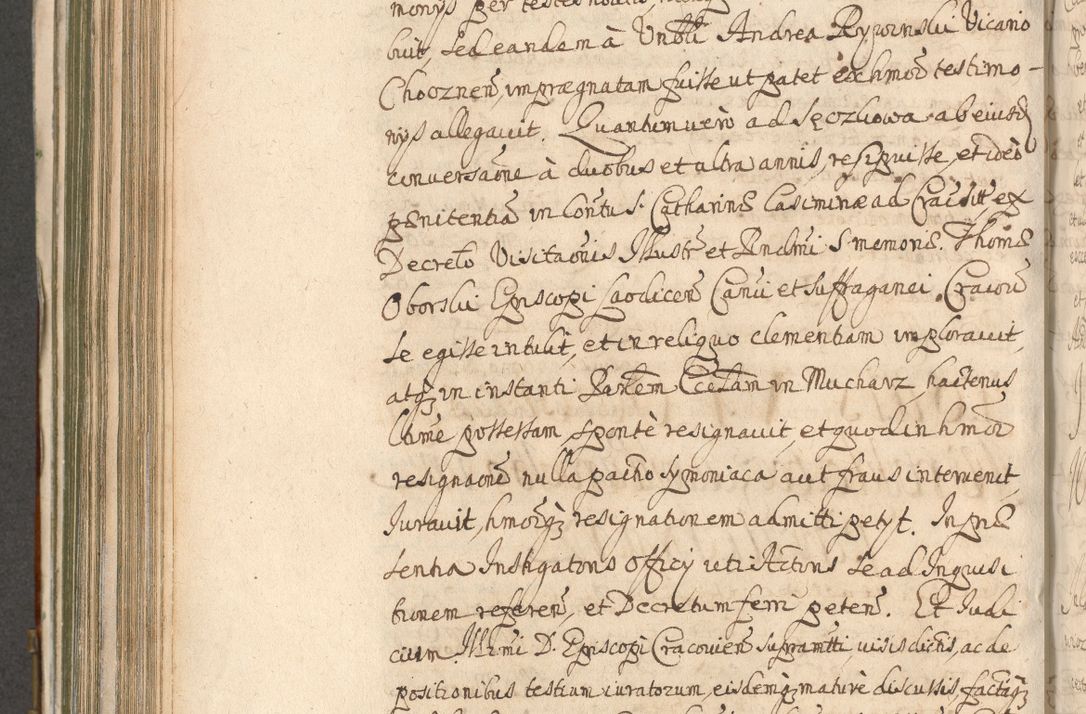 monys per testes
buit, sed eandem à Vnbli Andrea Ryzownski Vicario
Chooznen̄, imprægnatam fuisse ut patet ex hmoi testimo-
nys allegauit. Quantum vero ad Sęczkowa ab eiusd̄
conversaōne à duobus et ultra annis, resipuisse, et ideo
penitentiā in Contu S. Catharinæ Casiminæ ad Crac: sitt ex
Decreto Visitaōnis Illustr̄ et Rndmi S. memoriæ. Thomæ
Oborski Episcopi Laodicen̄ Canci et Suffraganei Cracou
se egisse intulit, et in reliquo clementiam implorauit,
atq̄ in instanti Parlem̄ Ecclam in Mucharz hactenus
lttime possessam, sponte resignauit, et quod in hmoi
resignaōne nulla pactio symoniaca aut fraus intervenit,
Iurauit, hmoiq̄ resignationem admitti petyt. In præ
sentia Instigatoris Officy uti Actoris se ad Inquisi
tionem referen̄, et Decretum ferri peten̄. Et Iudi
cium Illmi D. Episcopi Cracouien̄ supramtti, uisis dictis, ac de
positionibus testium iuratorum, eisdemq̄ mature discussis, factaq̄